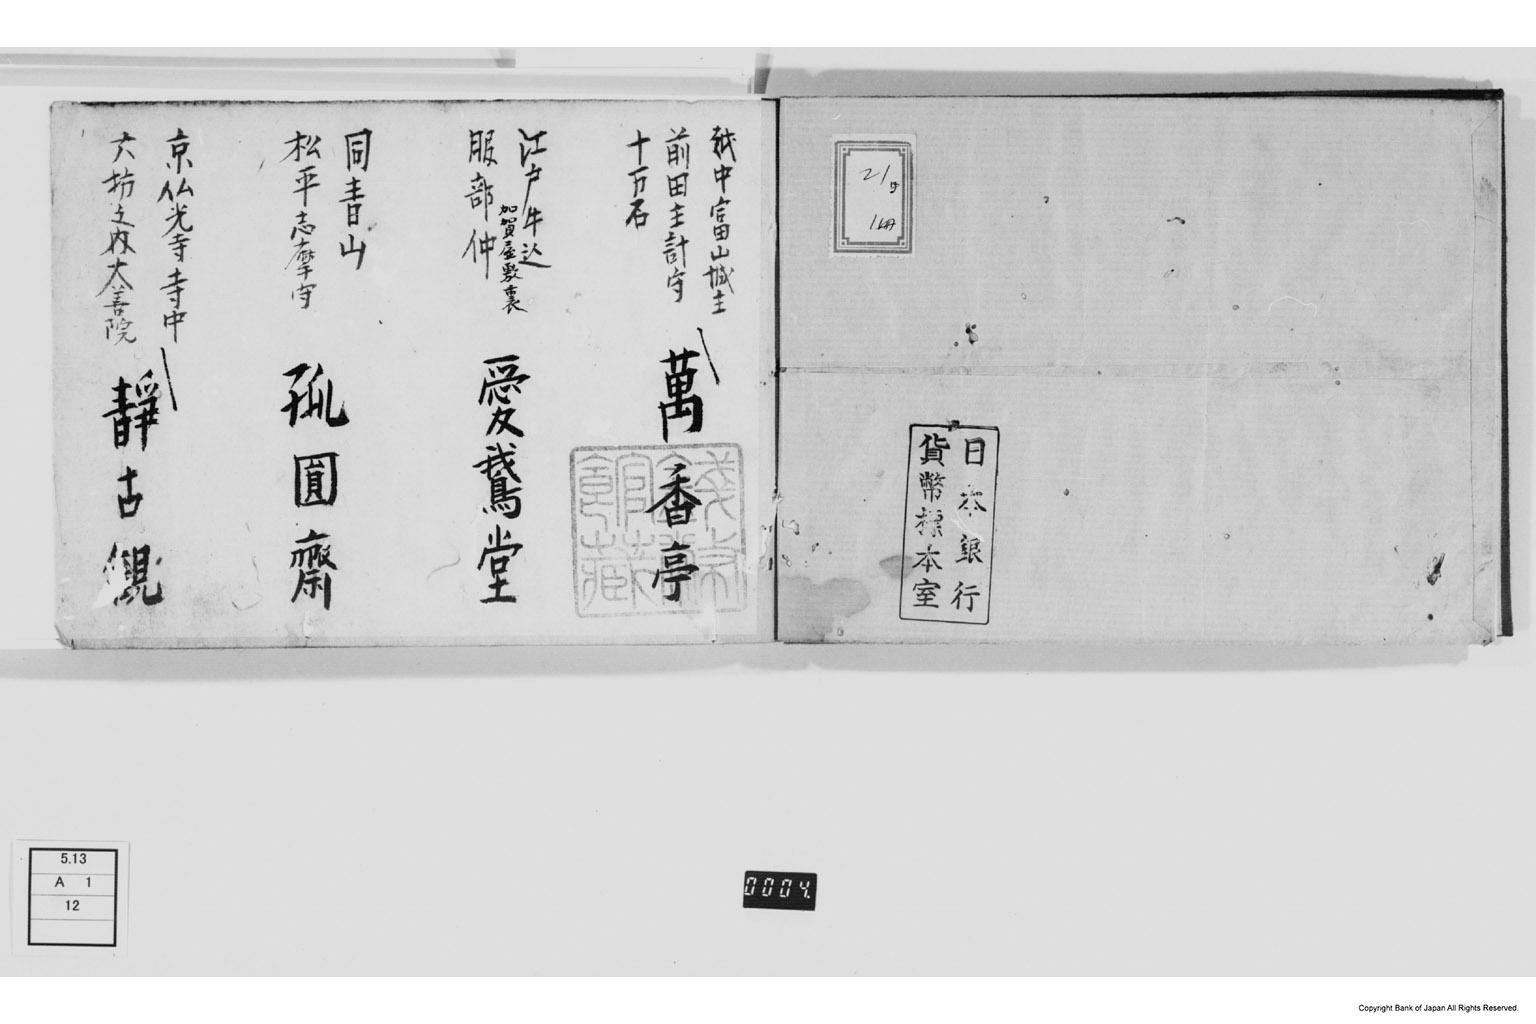 21号
1冊
日本銀行
貨幣標本室
越中富山城主
前田主計守
十万石
萬香亭
錢幣館藏
江戸牛込
加賀屋敷裏
服部仲
愛鵞堂
同青山
松平志摩守
孤圓齋
京仏光寺寺中
六坊之内大善院
靜古観
5.13
A 1
12
0004
Copyright Bank of Japan All Rights Reserved.